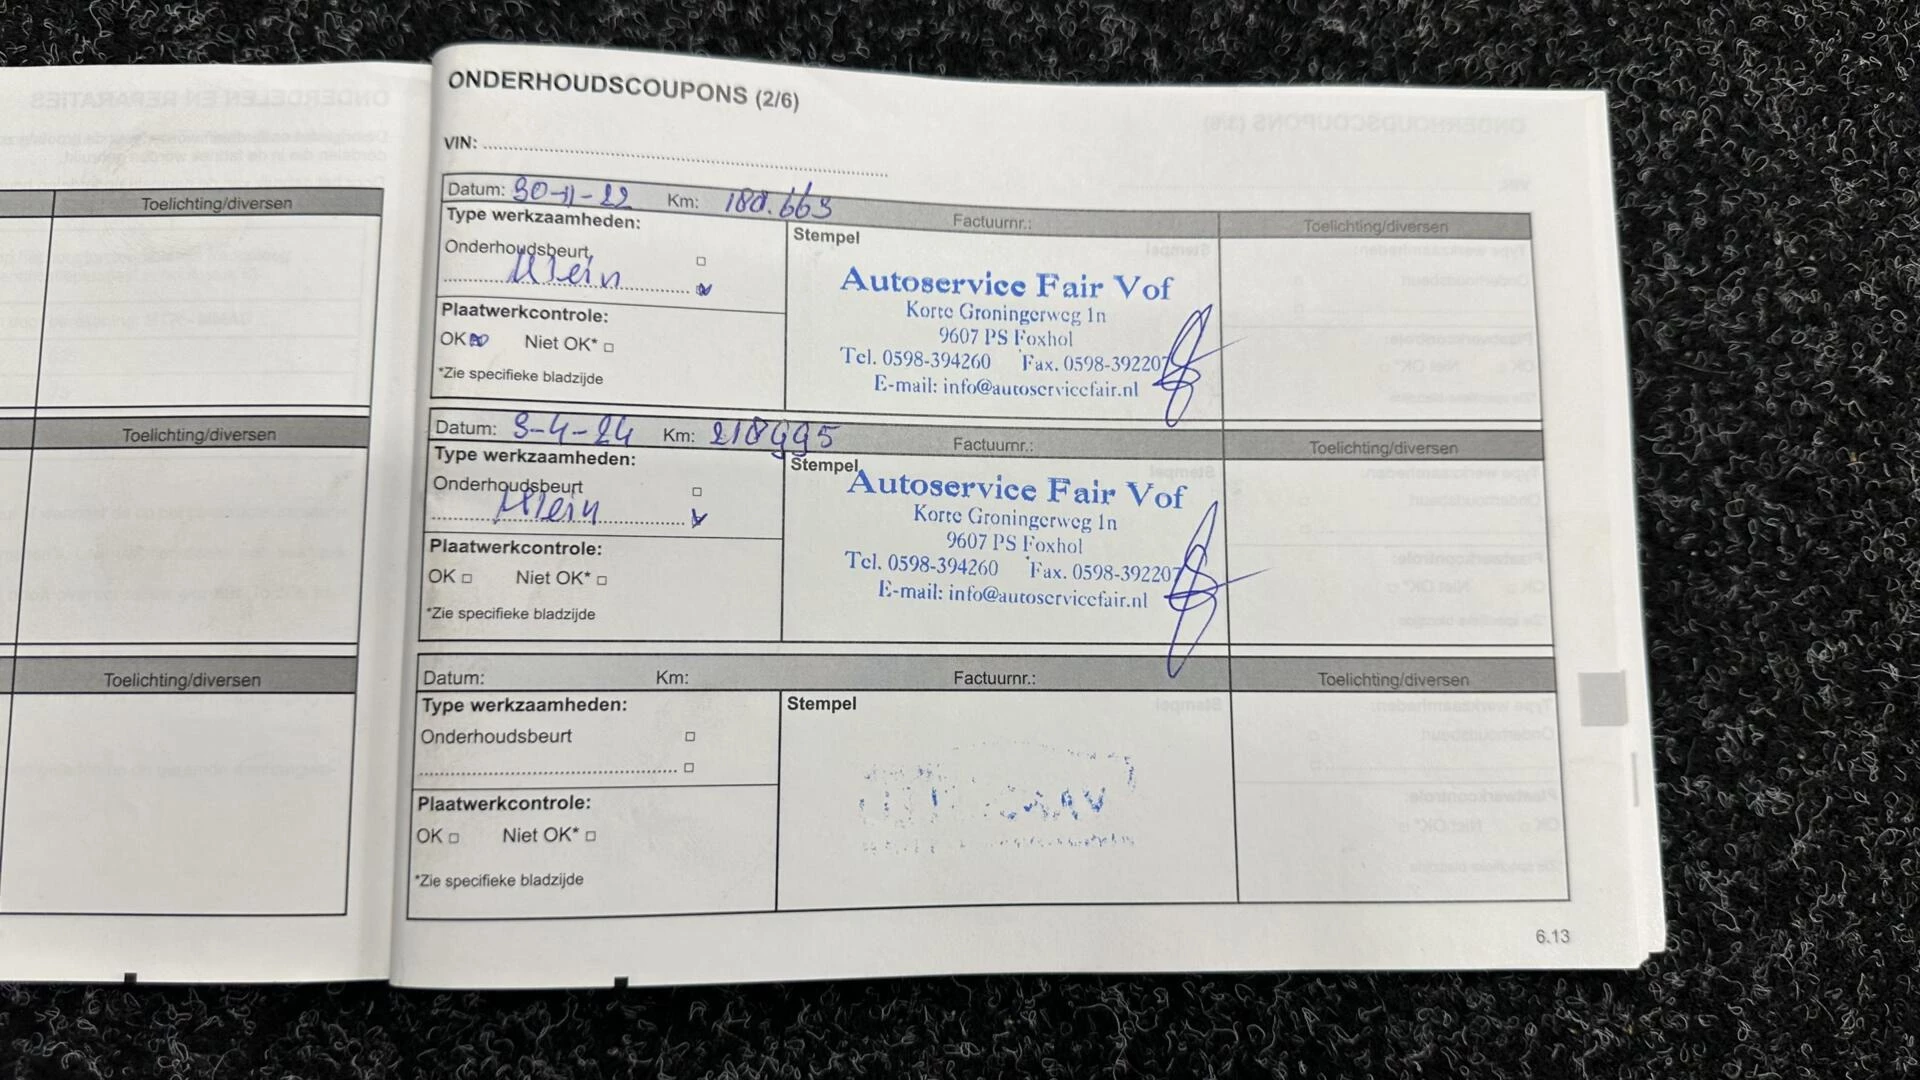 Toelichting/diversen
Toelichting/diversen
Toelichting/diversen
ONDERHOUDSCOUPONS (2/6)
VIN:
Datum: 30-11-22 Km: 180.663 Factuurnr.: Toelichting/diversen
Type werkzaamheden:
Onderhoudsbeurt
Klein
Plaatwerkcontrole:
OK Niet OK*
*Zie specifieke bladzijde
Stempel
Autoservice Fair Vof
Korte Groningerweg 1n
9607 PS Foxhol
Tel. 0598-394260 Fax. 0598-392207
E-mail: info@autoservicefair.nl
Datum: 3-4-24 Km: 218995 Factuurnr.: Toelichting/diversen
Type werkzaamheden:
Onderhoudsbeurt
Klein
Plaatwerkcontrole:
OK Niet OK*
*Zie specifieke bladzijde
Stempel
Autoservice Fair Vof
Korte Groningerweg 1n
9607 PS Foxhol
Tel. 0598-394260 Fax. 0598-392207
E-mail: info@autoservicefair.nl
Datum: Km: Factuurnr.: Toelichting/diversen
Type werkzaamheden:
Onderhoudsbeurt
Plaatwerkcontrole:
OK Niet OK*
*Zie specifieke bladzijde
Stempel
6.13